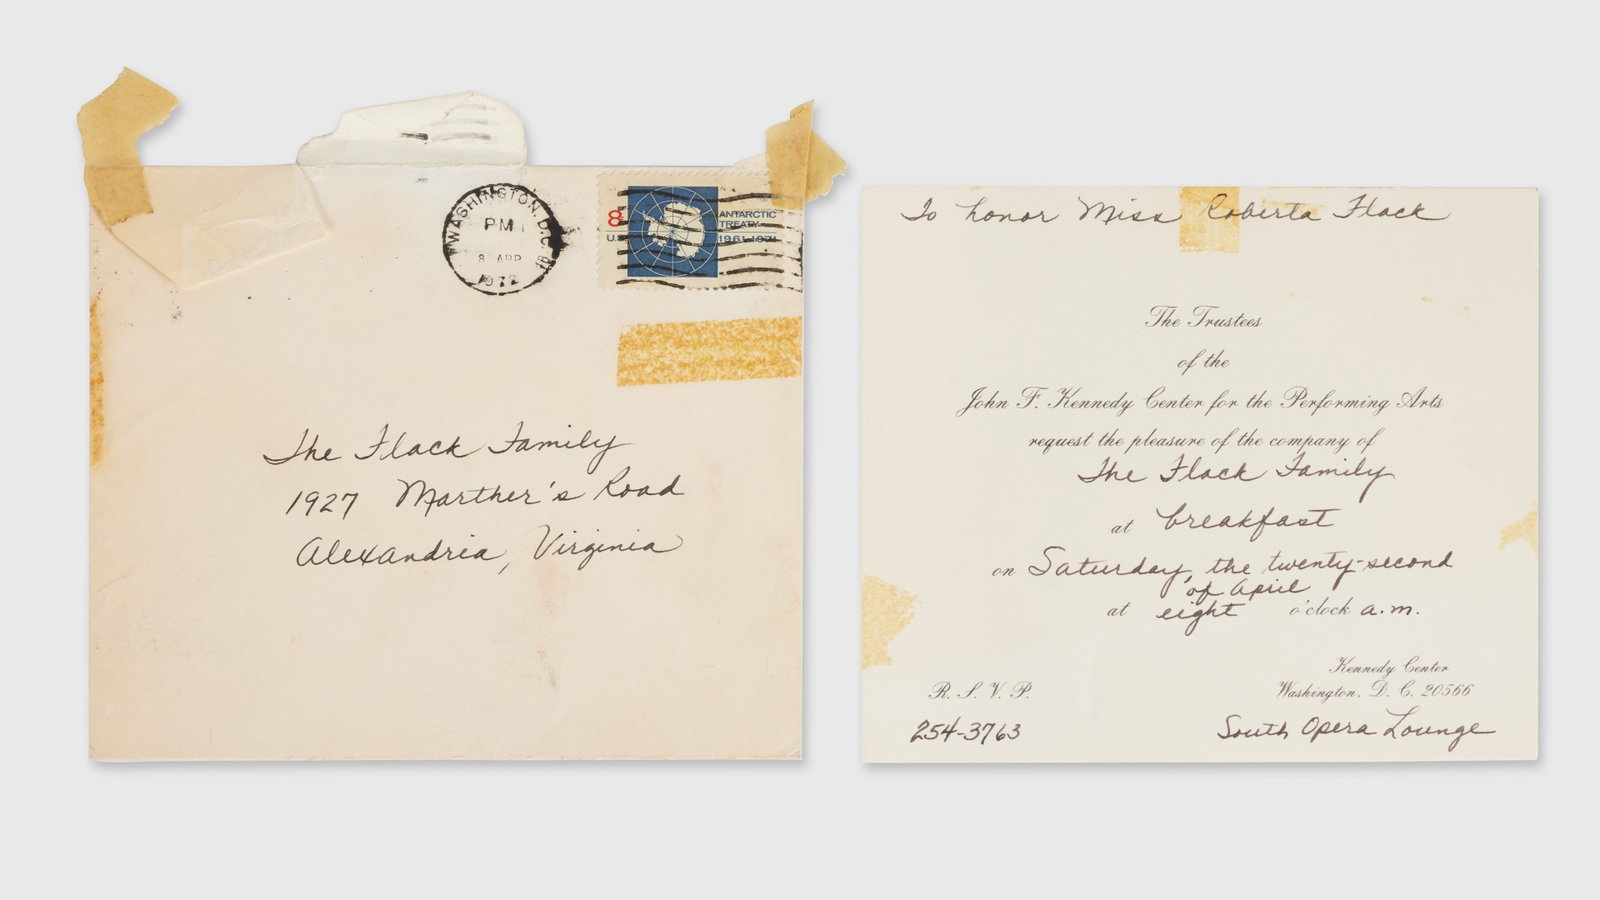 WASHINGTON, D.C.
PM
8 APR
1972
8
U.S.
ANTARCTIC
TREATY
1961-1971
The Flack Family
1927 Marther's Road
Alexandria, Virginia
To honor Miss Roberta Flack
The Trustees
of the
John F. Kennedy Center for the Performing Arts
request the pleasure of the company of
The Flack Family
at breakfast
on Saturday, the twenty-second
of April
at eight o'clock a.m.
Kennedy Center
R. S. V. P. Washington, D. C. 20566
254-3763 South Opera Lounge